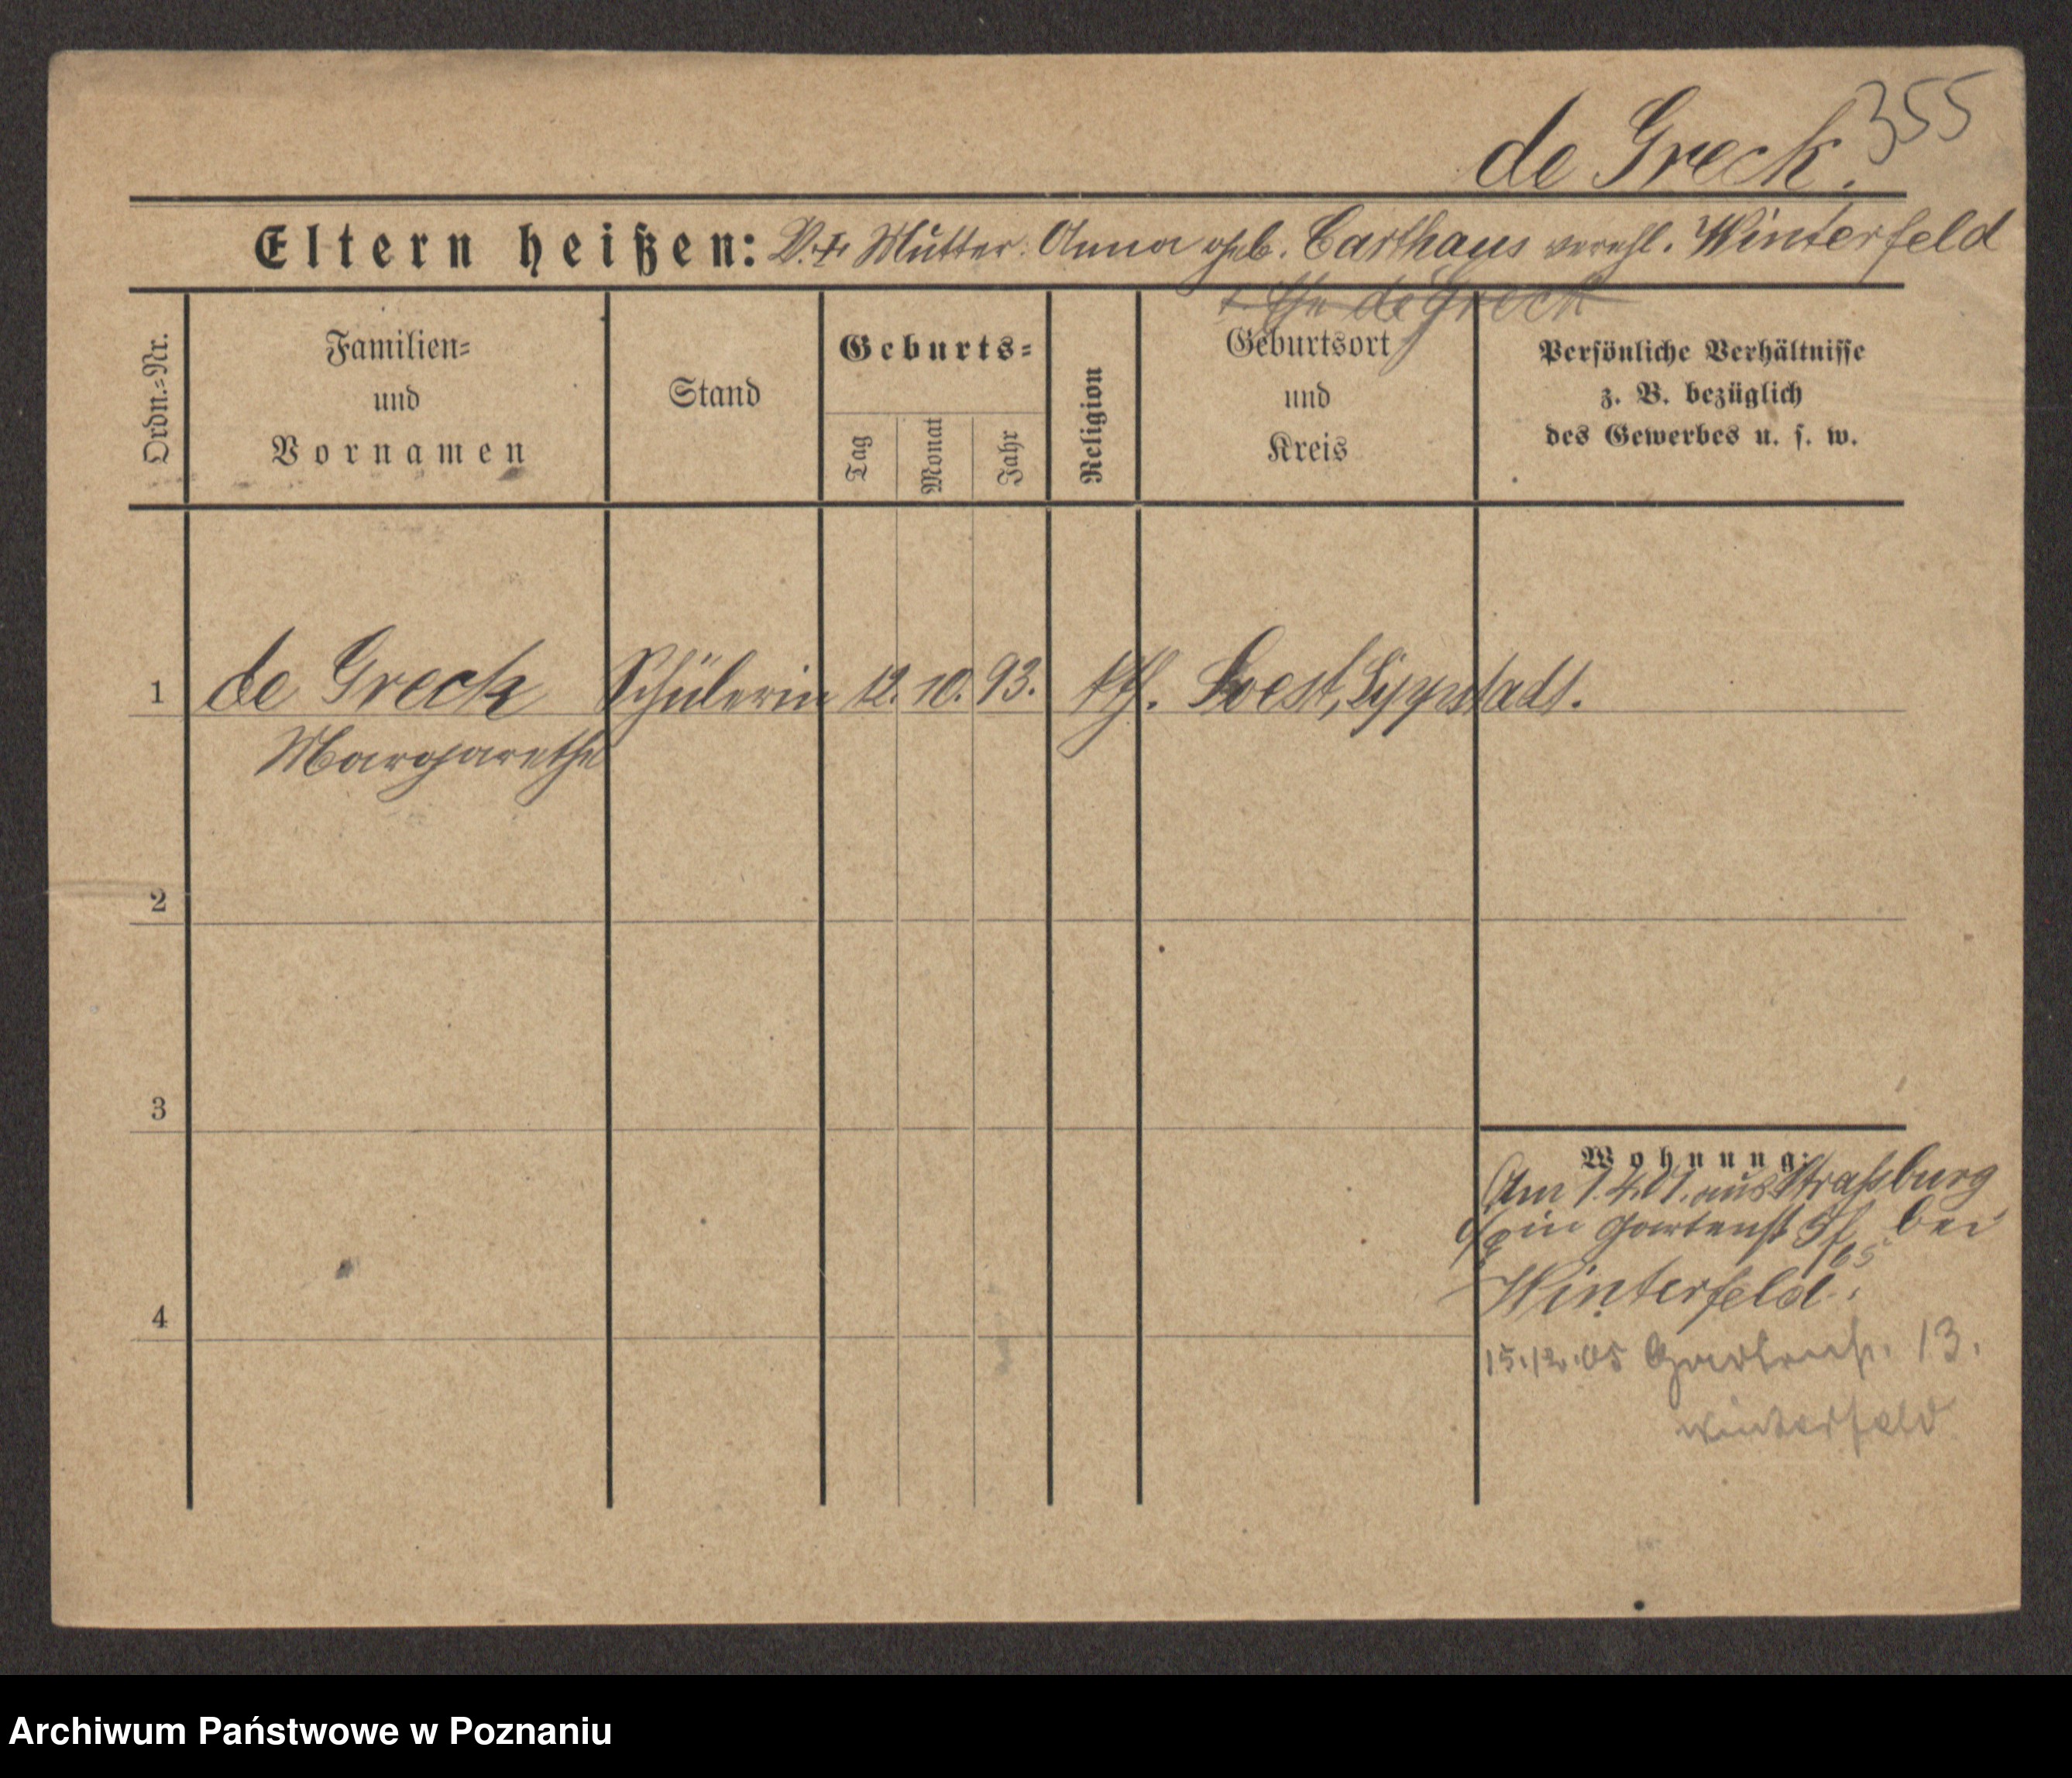 355
de Greck.
Eltern heißen: V. † Mutter: Anna geb. Carthaus verehl. Winterfeld
de Greck
Ordn.=Nr.
Familien=
und
Vornamen
Stand
Geburts=
Tag
Monat
Jahr
Religion
Geburtsort
und
Kreis
Persönliche Verhältnisse
z. B. bezüglich
des Gewerbes u. s. w.
1 de Greck Schülerin 12. 10. 93. kth. Soest, Lippstadt.
Margarethe
2
3
4
Wohnung:
Am 1. 4. 01. aus Straßburg
in Gartenst bei
Winterfeld.
15.12.05 Gartenstr. 13.
Winterfeld
Archiwum Państwowe w Poznaniu